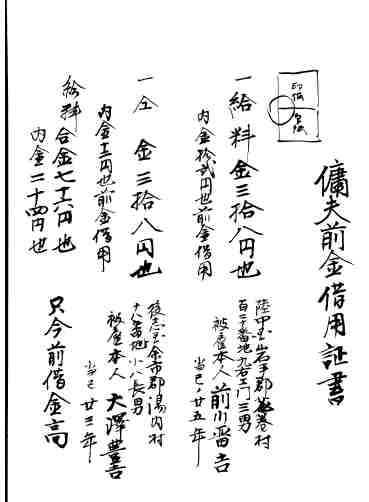 傭夫前金借用証書
印紙
一給料金三拾八円也
内金拾弐円也前金借用
陸中国岩手郡 巻村
百二十番地九右エ門三男
被雇本人前川留吉
当己ノ廿五年
一仝金三拾八円也
内金十二円也前金借用
後志国余市郡湯内村
十八番地小八長男
被雇本人大澤豊吉
当己廿三年
給料合金七十六円也
内金二十四円也
只今前借金高